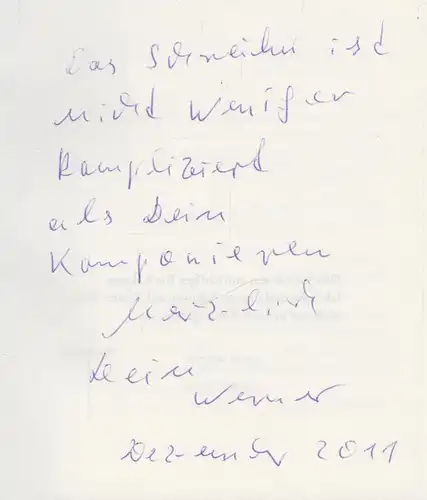 Das Schreiben ist
nicht weniger
kompliziert
als Dein
Komponieren
Herzlich
Dein
Werner
Dezember 2011